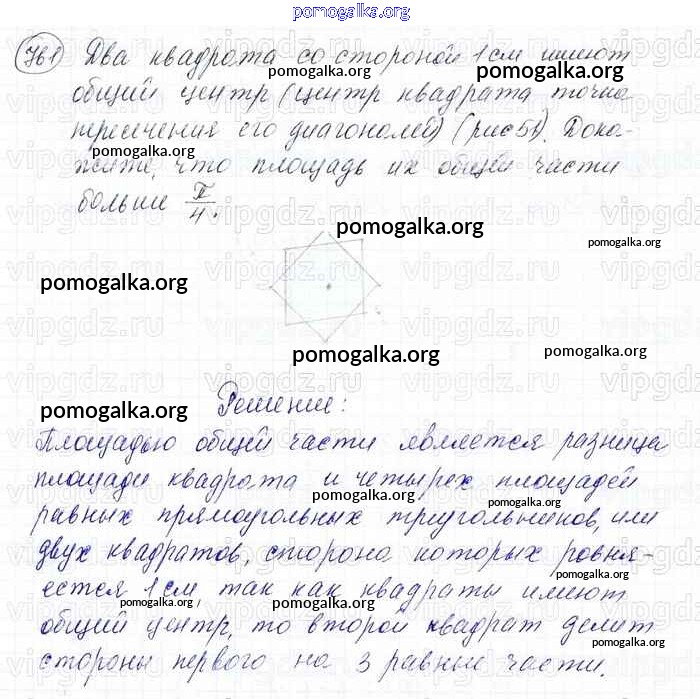 pomogalka.org
761 Два квадрата со стороной 1 см имеют
pomogalka.org pomogalka.org
общий центр (центр квадрата точка
пересечения его диагоналей) (рис 51). Дока-
pomogalka.org
жите, что площадь их общей части
больше π/4.
pomogalka.org
pomogalka.org
pomogalka.org
pomogalka.org
pomogalka.org
Решение:
pomogalka.org
Площадью общей части является разница
площади квадрата и четырех площадей
pomogalka.org pomogalka.org
равных прямоугольных треугольников, или
двух квадратов, сторона которых равня-
pomogalka.org
ется 1 см так как квадраты имеют
pomogalka.org pomogalka.org
общий центр, то второй квадрат делит
pomogalka.org
стороны первого на 3 равные части.
pomogalka.org
vipgdz.ru